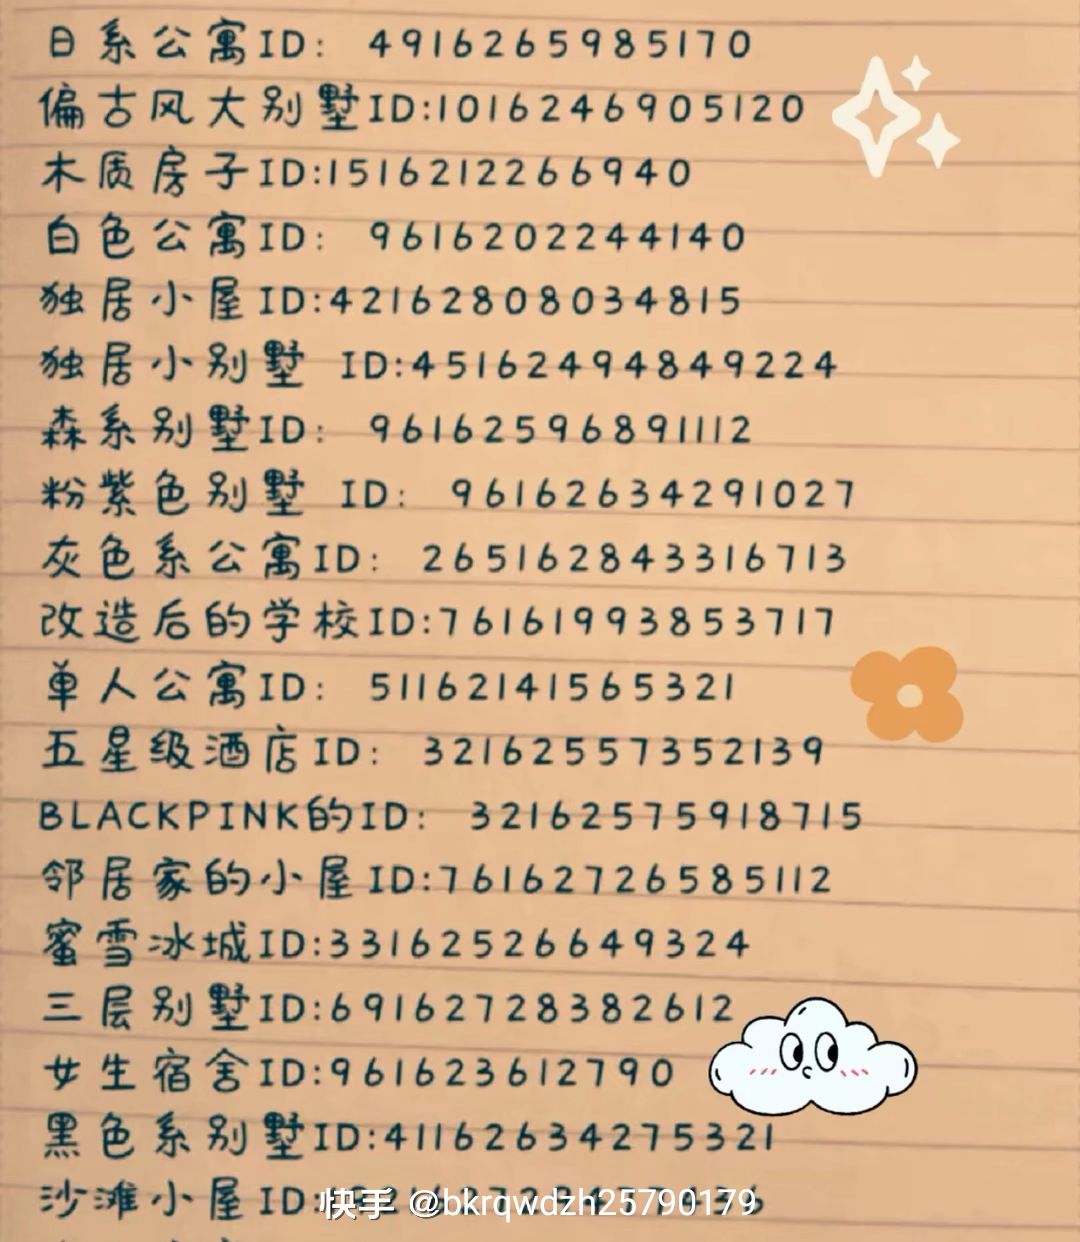 日系公寓ID: 4916265985170
偏古风大别墅ID:10162469051​20
木质房子ID:1516212266940
白色公寓ID: 9616202244140
独居小屋ID:42162808034815
独居小别墅 ID:45162494849224
森系别墅ID: 96162596891112
粉紫色别墅 ID: 96162634291027
灰色系公寓ID: 265162843316713
改造后的学校ID:76161993853717
单人公寓ID: 51162141565321
五星级酒店ID: 32162557352139
BLACKPINK的ID: 32162575918715
邻居家的小屋ID:76162726585112
蜜雪冰城ID:33162526649324
三层别墅ID:69162728382612
女生宿舍ID:961623612790
黑色系别墅ID:41162634275321
沙滩小屋ID:
快手 @bkrqwdzh25790179